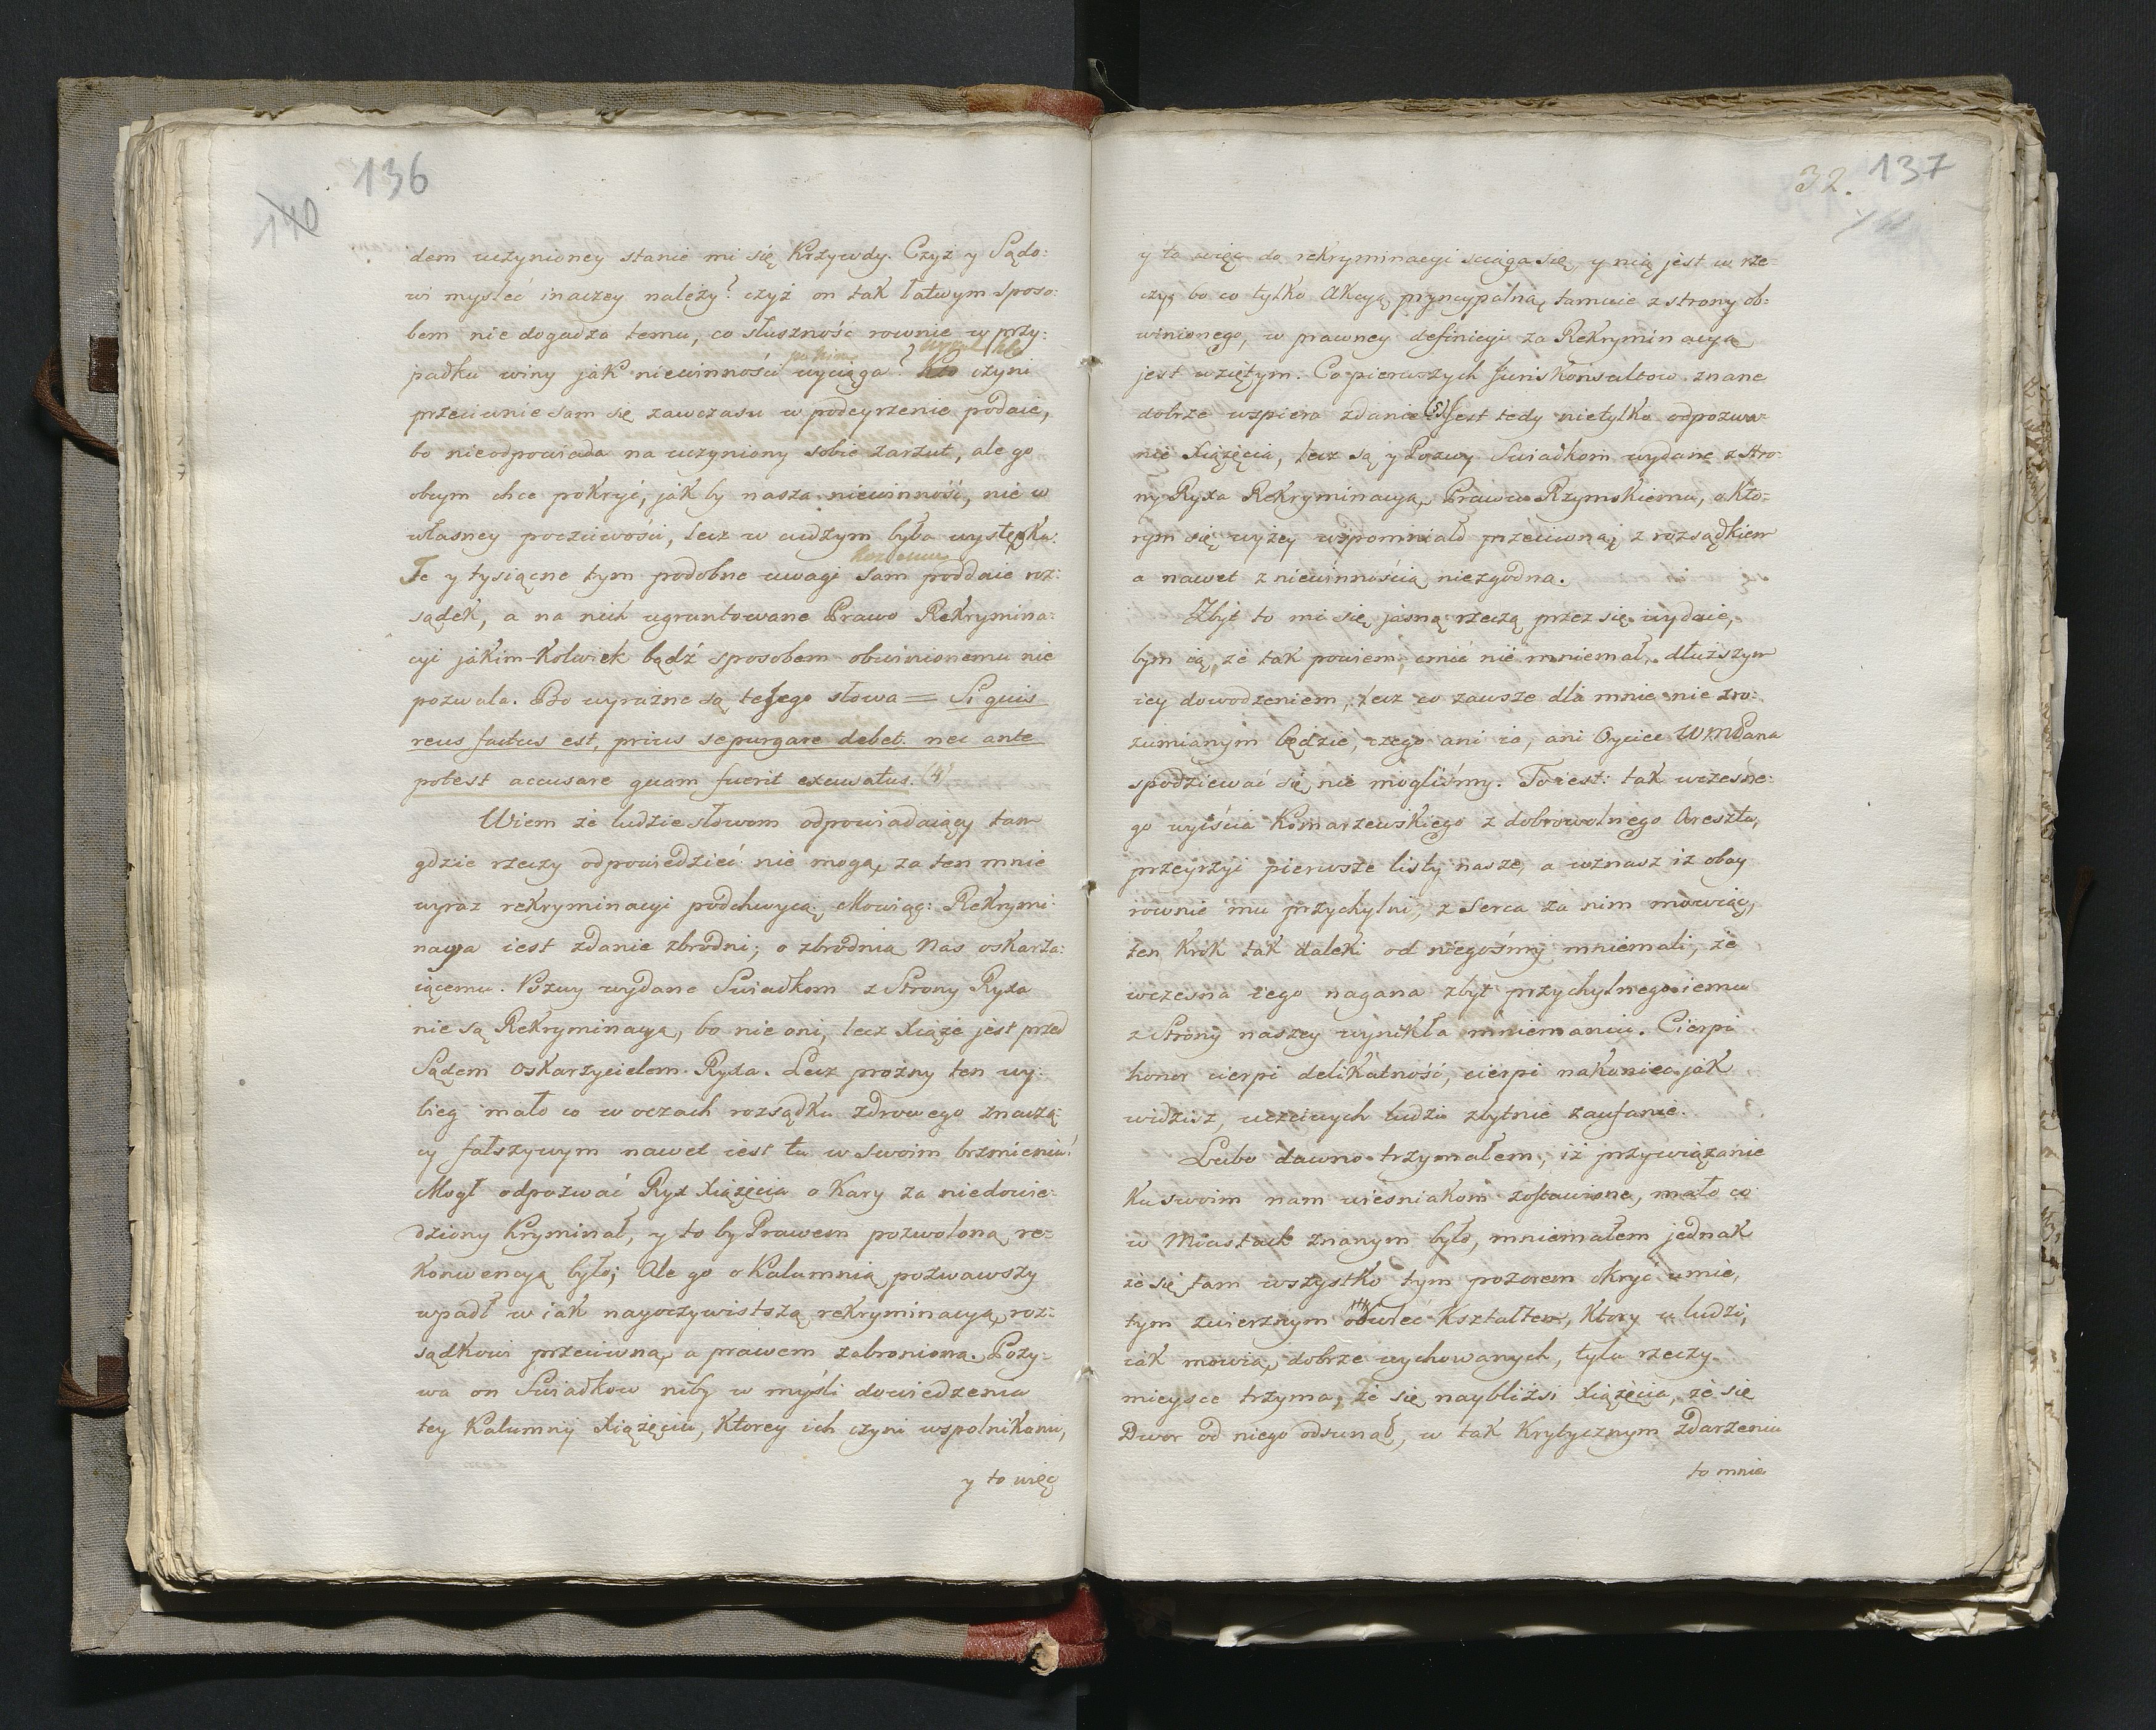 136
140
dem uczynioney stanie mi się Krzywdy. Czyż y Sądo:
wi mysleć inaczey należy? czyż on tak łatwym sposo:
bem nie dogadza temu, co słuszność rownie w przy:
padku winy jak niewinności wyciąga? Kto czyni
przeciwnie sam się zawczasu w podeyrzenie podaie,
bo nieodpowiada na uczyniony sobie zarzut, ale go
obcym chce pokryć, jak by nasza niewinność, nie w
własney poczciwości, lecz w cudzym była występku.
Te y tysiączne tym podobne uwagi sam poddaie roz:
sądek, a na nich ugruntowane Prawo Rekrymina:
cyi jakim-kolwiek bądź sposobem obwinionemu nie
pozwala. Bo wyraźne są tego słowa = Si quis
reus factus est, prius se purgare debet. nec ante
potest accusare quam fuerit excusatus. (4)
Wiem że ludzie słowom odpowiadaiący tam
gdzie rzeczy odpowiedzieć nie mogą, za ten mnie
wyraz rekryminacyi podchwycą. Mowiąc: Rekrymi:
nacya iest zdanie zbrodni; o zbrodnią Nas oskarża:
iącemu. Pozwy wydane Swiadkom z Strony Ryxa
nie są Rekryminacyą, bo nie oni, lecz Xiąże jest przed
Sądem Oskarzycielem Ryxa. Lecz prożny ten wy:
bieg mało co w oczach rozsądku zdrowego znaczą:
cy fałszywym nawet iest tu w swoim brzmieniu!
Mogł odpozwać Ryx Xiążęcia o Kary za niedowie:
dziony Kryminał, y to by Prawem pozwoloną re:
konwencyą było; Ale go o Kalumnią pozwawszy
wpadł w iak nayoczywistszą rekryminacyą, roz:
sądkowi przeciwną, a prawem zabronioną. Pozy:
wa on Swiadkow niby w myśli dowiedzenia
tey Kalumnij Xiążęciu, ktorey ich czyni wspolnikami,
y to więc
32. 137
y to więc do rekryminacyi sciąga się, y nią jest w rze:
czy, bo co tylko Akcyą pryncypalną tamuie z strony ob:
winionego, w prawney definicyi za Rekryminacyą
jest wziętym. Co pierwszych Juriskonsultow znane
dobrze wspiera zdanie (5) Jest tedy nietylko odpozwa:
nie Xiążęcia, lecz są y Pozwy Swiadkom wydane z stro:
ny Ryxa Rekryminacyą, Prawu Rzymskiemu, o kto:
rym się wyżey wspomniało przeciwną, z rozsądkiem
a nawet z niewinnością niezgodną.
Zbyt to mi się jasną rzeczą przez się wydaie,
bym ią, że tak powiem, cmić nie mniemał, dłuższym
iey dowodzeniem, lecz co zawsze dla mnie nie zro:
zumianym będzie, czego ani ia, ani Oyciec WMPana
spodziewać się nie mogliśmy. To iest: tak wczesne:
go wyiścia Komarzewskiego z dobrowolnego Aresztu,
przeyrzyi pierwsze listy nasze, a uznasz iż obay
rownie mu przychylni, z serca za nim mowiąc,
ten krok tak daleki od niegośmy mniemali, że
wczesna iego nagana zbyt przychylnego iemu
z Strony naszey wynikła mniemaniu. Cierpi
honor cierpi delikatność, cierpi nakoniec jak
widzisz, uczciwych ludzi zbytnie zaufanie.
Lubo dawno trzymałem, iż przywiązanie
ku swoim nam wiesniakom zostawione, mało co
w Miastach znanym było, mniemałem jednak
że się tam wszystko tym pozorem okryć umie,
tym zwierznym obwiec kształtem, ktory u ludzi,
iak mowią, dobrze wychowanych, tylu rzeczy
mieysce trzyma, że się naybliżsi Xiążęcia, że się
Dwor od niego odsunął, w tak Krytycznym zdarzeniu
to mnie